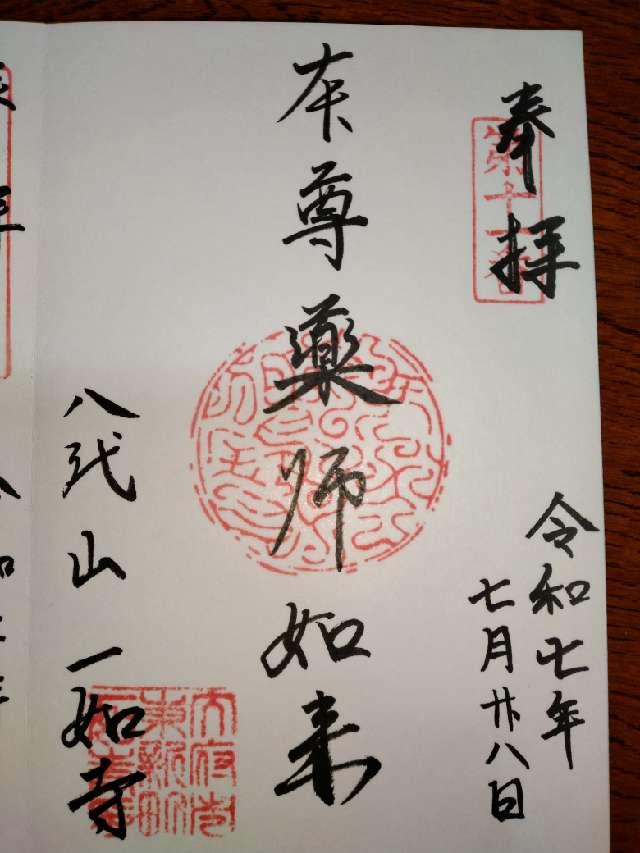 奉拝
第十一番
令和七年
七月廿八日
本尊薬師如来
八代山一如寺